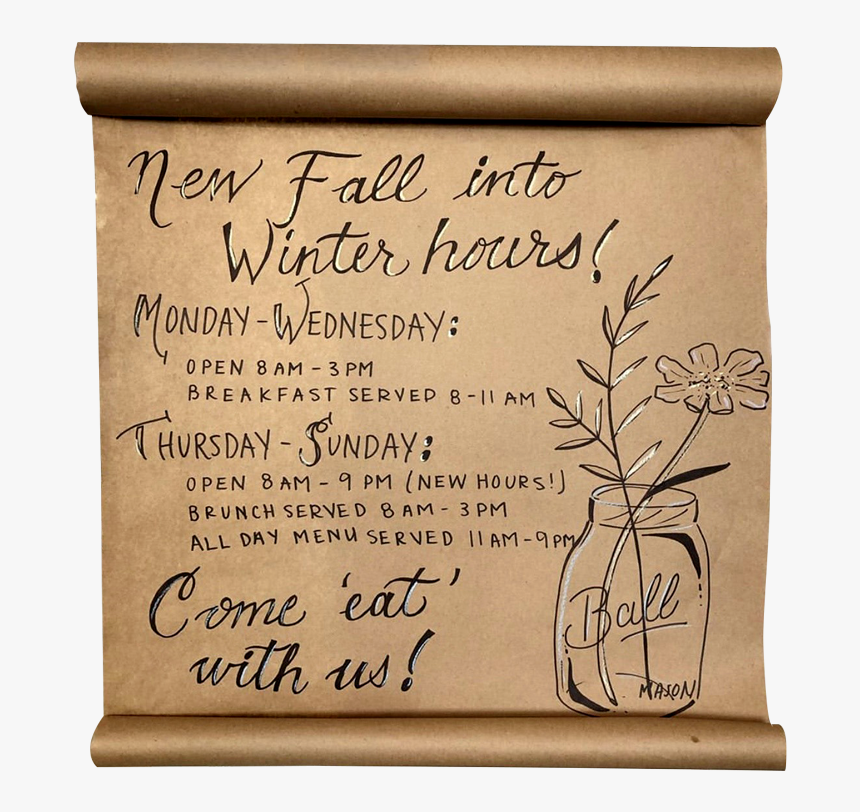 New Fall into
Winter hours!
MONDAY - WEDNESDAY:
OPEN 8 AM - 3 PM
BREAKFAST SERVED 8-11 AM
THURSDAY - SUNDAY:
OPEN 8 AM - 9 PM (NEW HOURS!)
BRUNCH SERVED 8 AM - 3 PM
ALL DAY MENU SERVED 11 AM - 9 PM
Come 'eat'
with us!
Ball
MASON